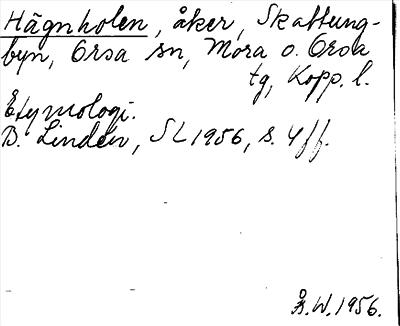 Hägnholen, åker, Skattung-
byn, Orsa sn, Mora o. Orsa
tg, Kopp. l.
Etymologi.
B. Lindén, SL 1956, s. 4 ff.
Å.W. 1956.